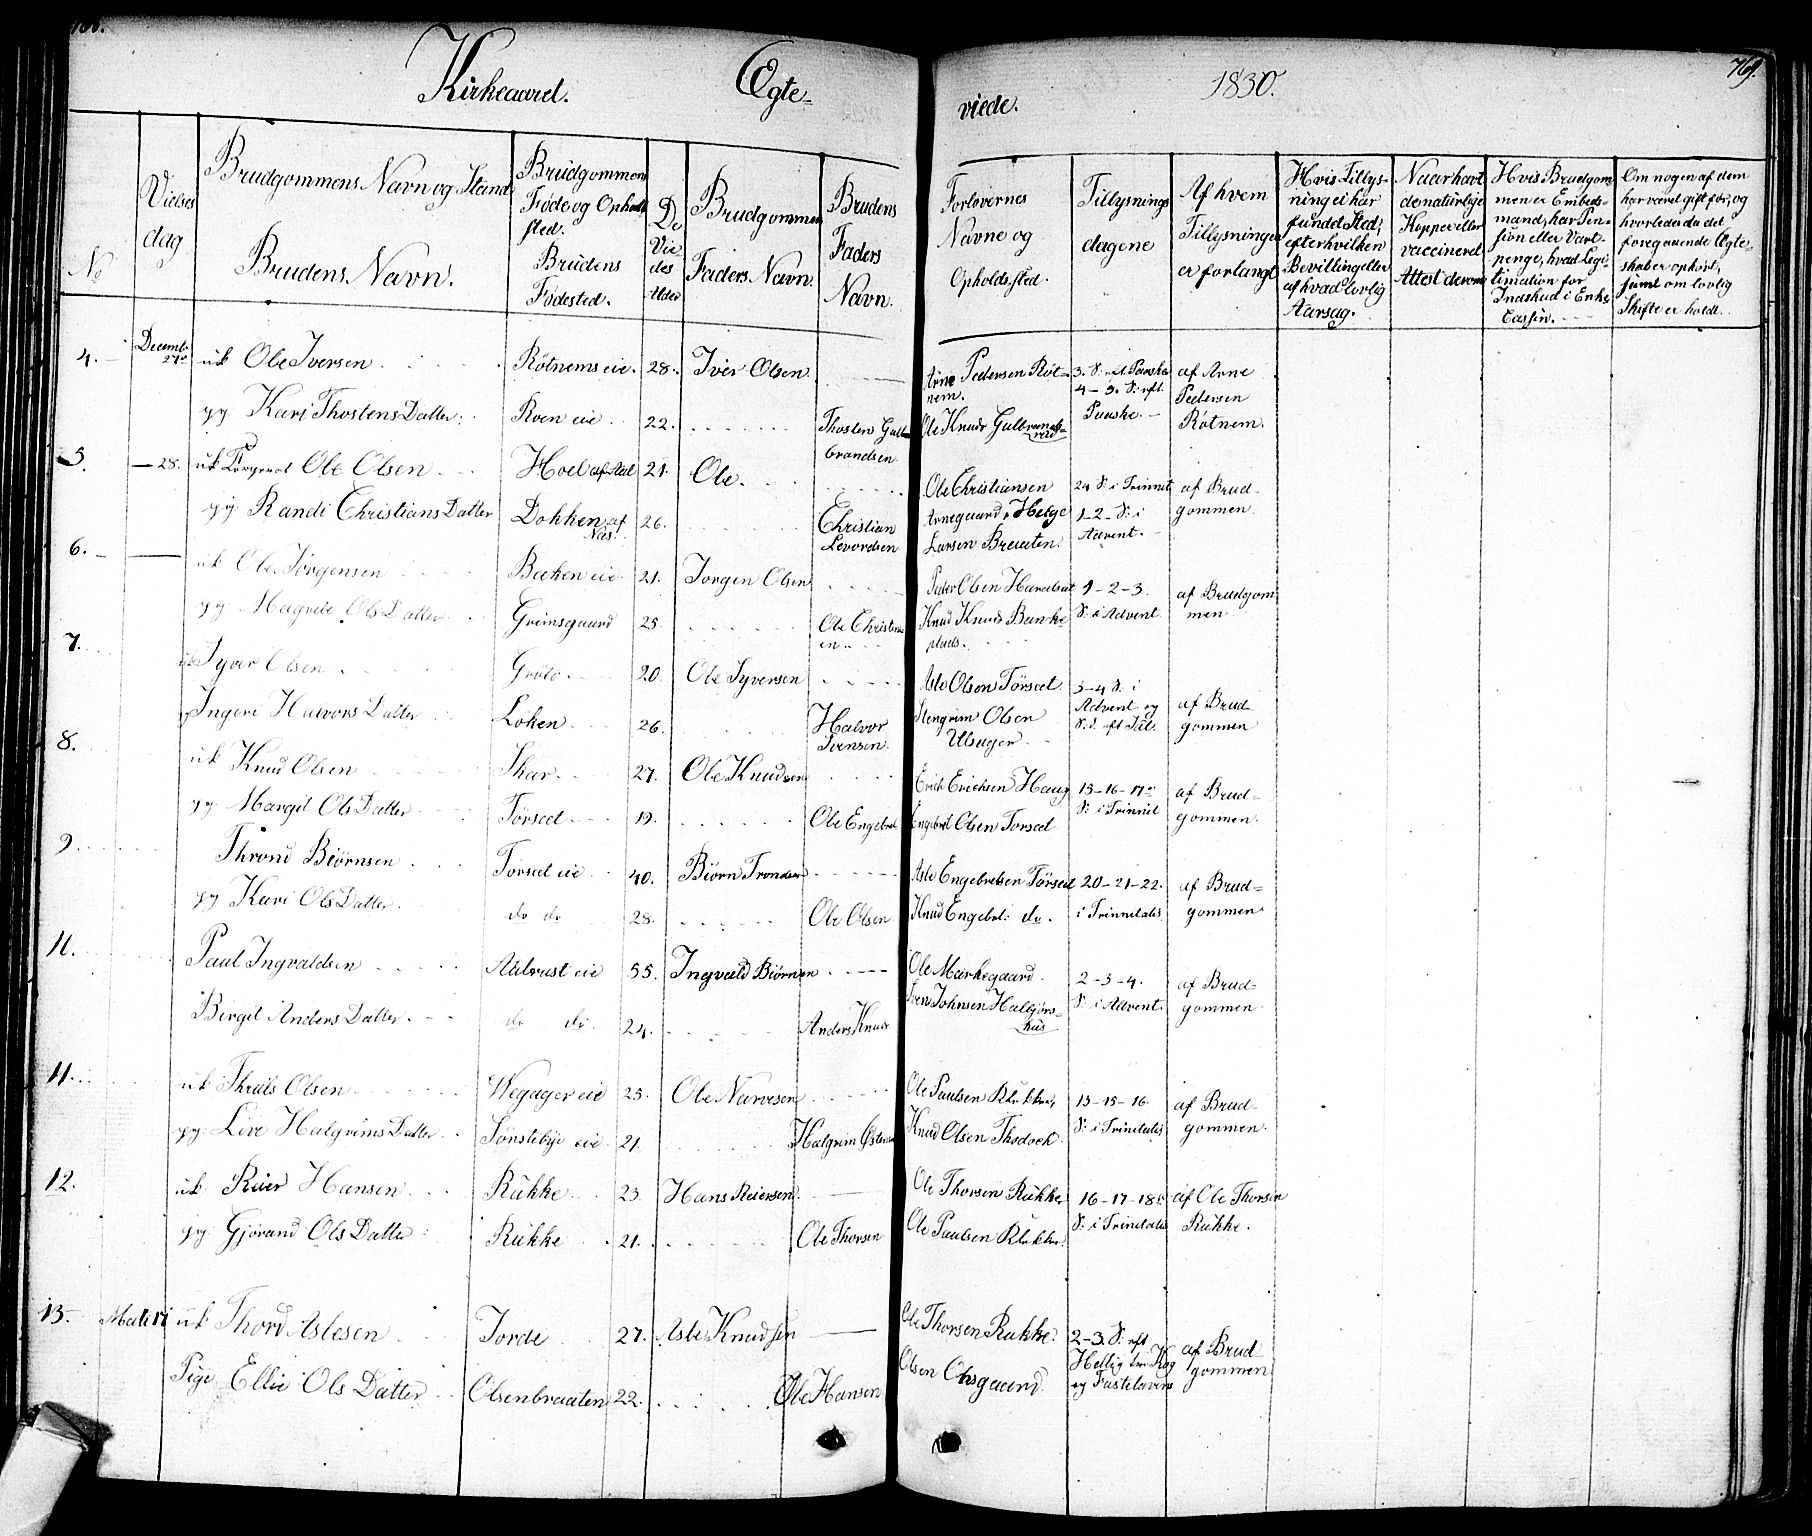 Kirkeaard. Ægte-
viede. 1830. 769.
No
Vielses dag
Brudgommens Navn og Stand
Brudens Navn.
Brudgommen Føde og Opholdsted.
Brudens Fødested.
De Viedes Alder
Brudgommen Faders Navn.
Brudens Faders Navn.
Forlovernes Navne og Opholdssted.
Tillysnings dagene
Af hvem Tillysningen er forlangt
Hvis Tillysning ei har fundet Sted, efter hvilken Bevilling eller af hvad lovlig Aarsag.
Naar havt de naturlige Kopper eller vaccineret Attest derom
Hvis Brudgommen er Embedsmand, har Pension eller Vartpenge, hvad Legitimation for Indskud i Enke Cassen.
Om nogen af dem har været gift før, og hvorledes da det foregaaende Ægteskab er ophört, samt om lovlig Skifte er holdt.
4. Decemb. 27de uk Ole Iversen Rötnems eie. 28. Iver Olsen Arne Pedersen Rötnem. 3. S: eft Paaske af Arne
4-5. S: eft. Pedersen
pg Kari Thostens Datter Roen eie 22. Thosten Gulbrandsen Ole Knuds Paaske. Rötnem.
5. 28. uk Ole Olsen Hoel af Aal 21. Ole. Ole Christiansen 24 S: i Trinnit af Brud-
pg Randi Christians Datter Dokken af Næs. 26. Christian Levordsen Arnegaard, Helge 1-2- S: i gommen
Larsen Braaten. Advent.
6. uk Ole Jörgensen Bekken eie 21. Jörgen Olsen Peder Olsen 1-2-3. af Brudgom
pg Magrete Ols Datter Grimsgaard 25. Ole Christensen Knud Knuds S: i Advent men
7. Syver Olsen Gröte 20. Ole Syversen Asle Olsen Törsæt 3-4 S: i
Ingeri Halvors Datter Löken 26. Halvor Svensen. Stengrim Olsen Ulsager Advent og S. eft Jul. af Brudgommen
8. uk Knud Olsen Skar 27. Ole Knudsen Erich Erichsen Haug 15-16-17de af Brud-
pg Margit Ols Datter Törsæt 19. Ole Engebret Engebret Olsen Torsæt S: i Trinnit gommen.
9. Thrond Biörnsen Törsæt eie 40. Biörn Tronsen Asle Engebretsen Törsæt 20-21-22. af Brud-
pg Kari Ols Datter do do 28. Ole Olsen Knud Engebret: do. i Trinnitatis gommen
11. Paul Ingvaldsen Aalrust eie 55. Ingvald Biörnsen Ole Markegaard 2-3-4. af Brud-
Birgit Anders Datter do do. 24. Anders Knuds Sven Johnsen Halbjörshus S: i Advent. gommen
11. uk Thrüls Olsen Wegager eie 25. Ole Narvesen Ole Paulsen 13-15-16. af Brud-
pg. Live Halgrims Datter Sönsteby eie 21. Halgrim Knud Olsen S: i Trinitatis gommen.
12. uk. Reier Hansen Rukke 23. Hans Reiersen. Ole Thorsen Rukke 16-17-18de af Ole Thorsen
pg. Gjörand Ols Datter Rukke 21. Ole Thorsen Ole Paulsen S: i Trinitatis Rukke.
13- uk Thord Aslesen Torde 27. Asle Knudsen Ole Thorsen Rukke. 2-3. S: eft af Brud
Pige Ellie Ols Datter Olsenbraaten 22. Ole Hansen Olsen Hellig tre Kog og Fastelavns gommen